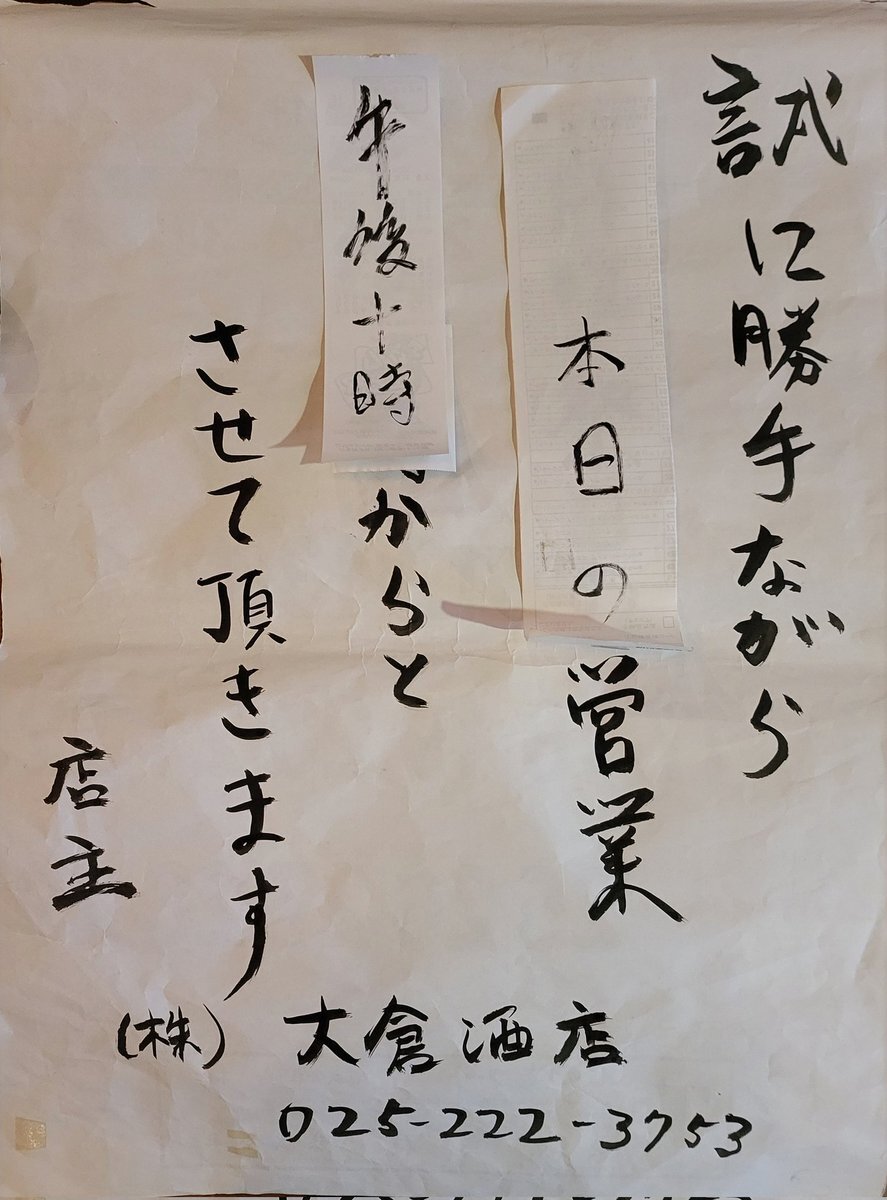 試に勝手ながら
本日の営業
午後十時からと
させて頂きます
店主
(株) 大倉酒店
025-222-3753